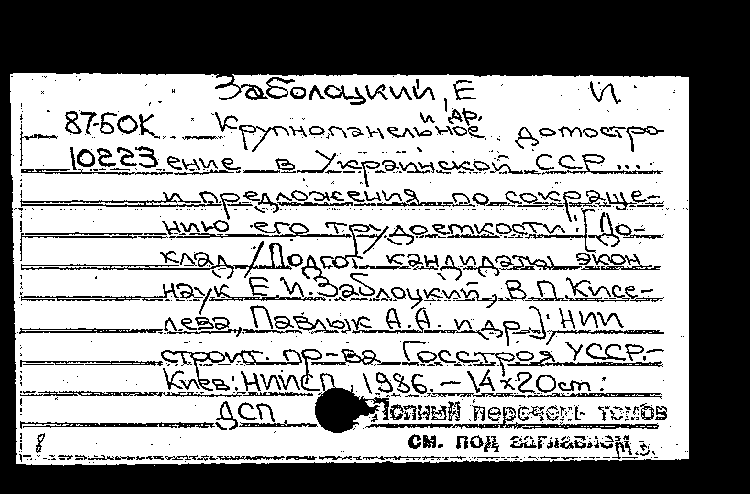 Заболоцкий, Е И
и др.
87-5ОК Крупнопанельное домостро-
10223 ение в Украинской ССР ...
и предложения по сокраще-
нию его трудоемкости: [До-
клад / Подгот. кандидаты экон
наук Е.И. Заблоцкий, В.П. Кисе-
лева, Павлык А.А. и др.]; НИИ
строит. пр-ва Госстроя УССР.-
Киев: НИИСП, 1986. - 14x20cm:
ДСП. Полный перечень томов
8 см. под заглавием